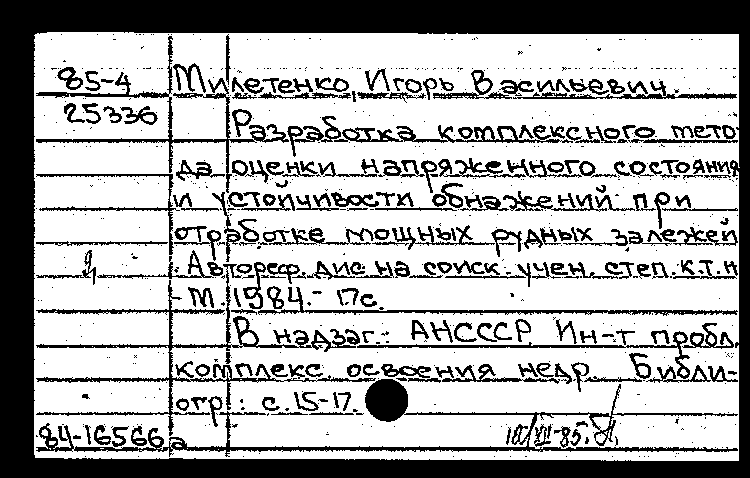 85-4 Милетенко, Игорь Васильевич.
25336 Разработка комплексного мето-
да оценки напряженного состояния
и устойчивости обнажений при
отработке мощных рудных залежей
. Автореф. дис на соиск. учен. степ. к.т.н
- М. 1984.- 17с.
В надзаг.: АНСССР. Ин-т пробл.
комплекс. освоения недр. Библи-
огр.: с.15-17.
84-16566а